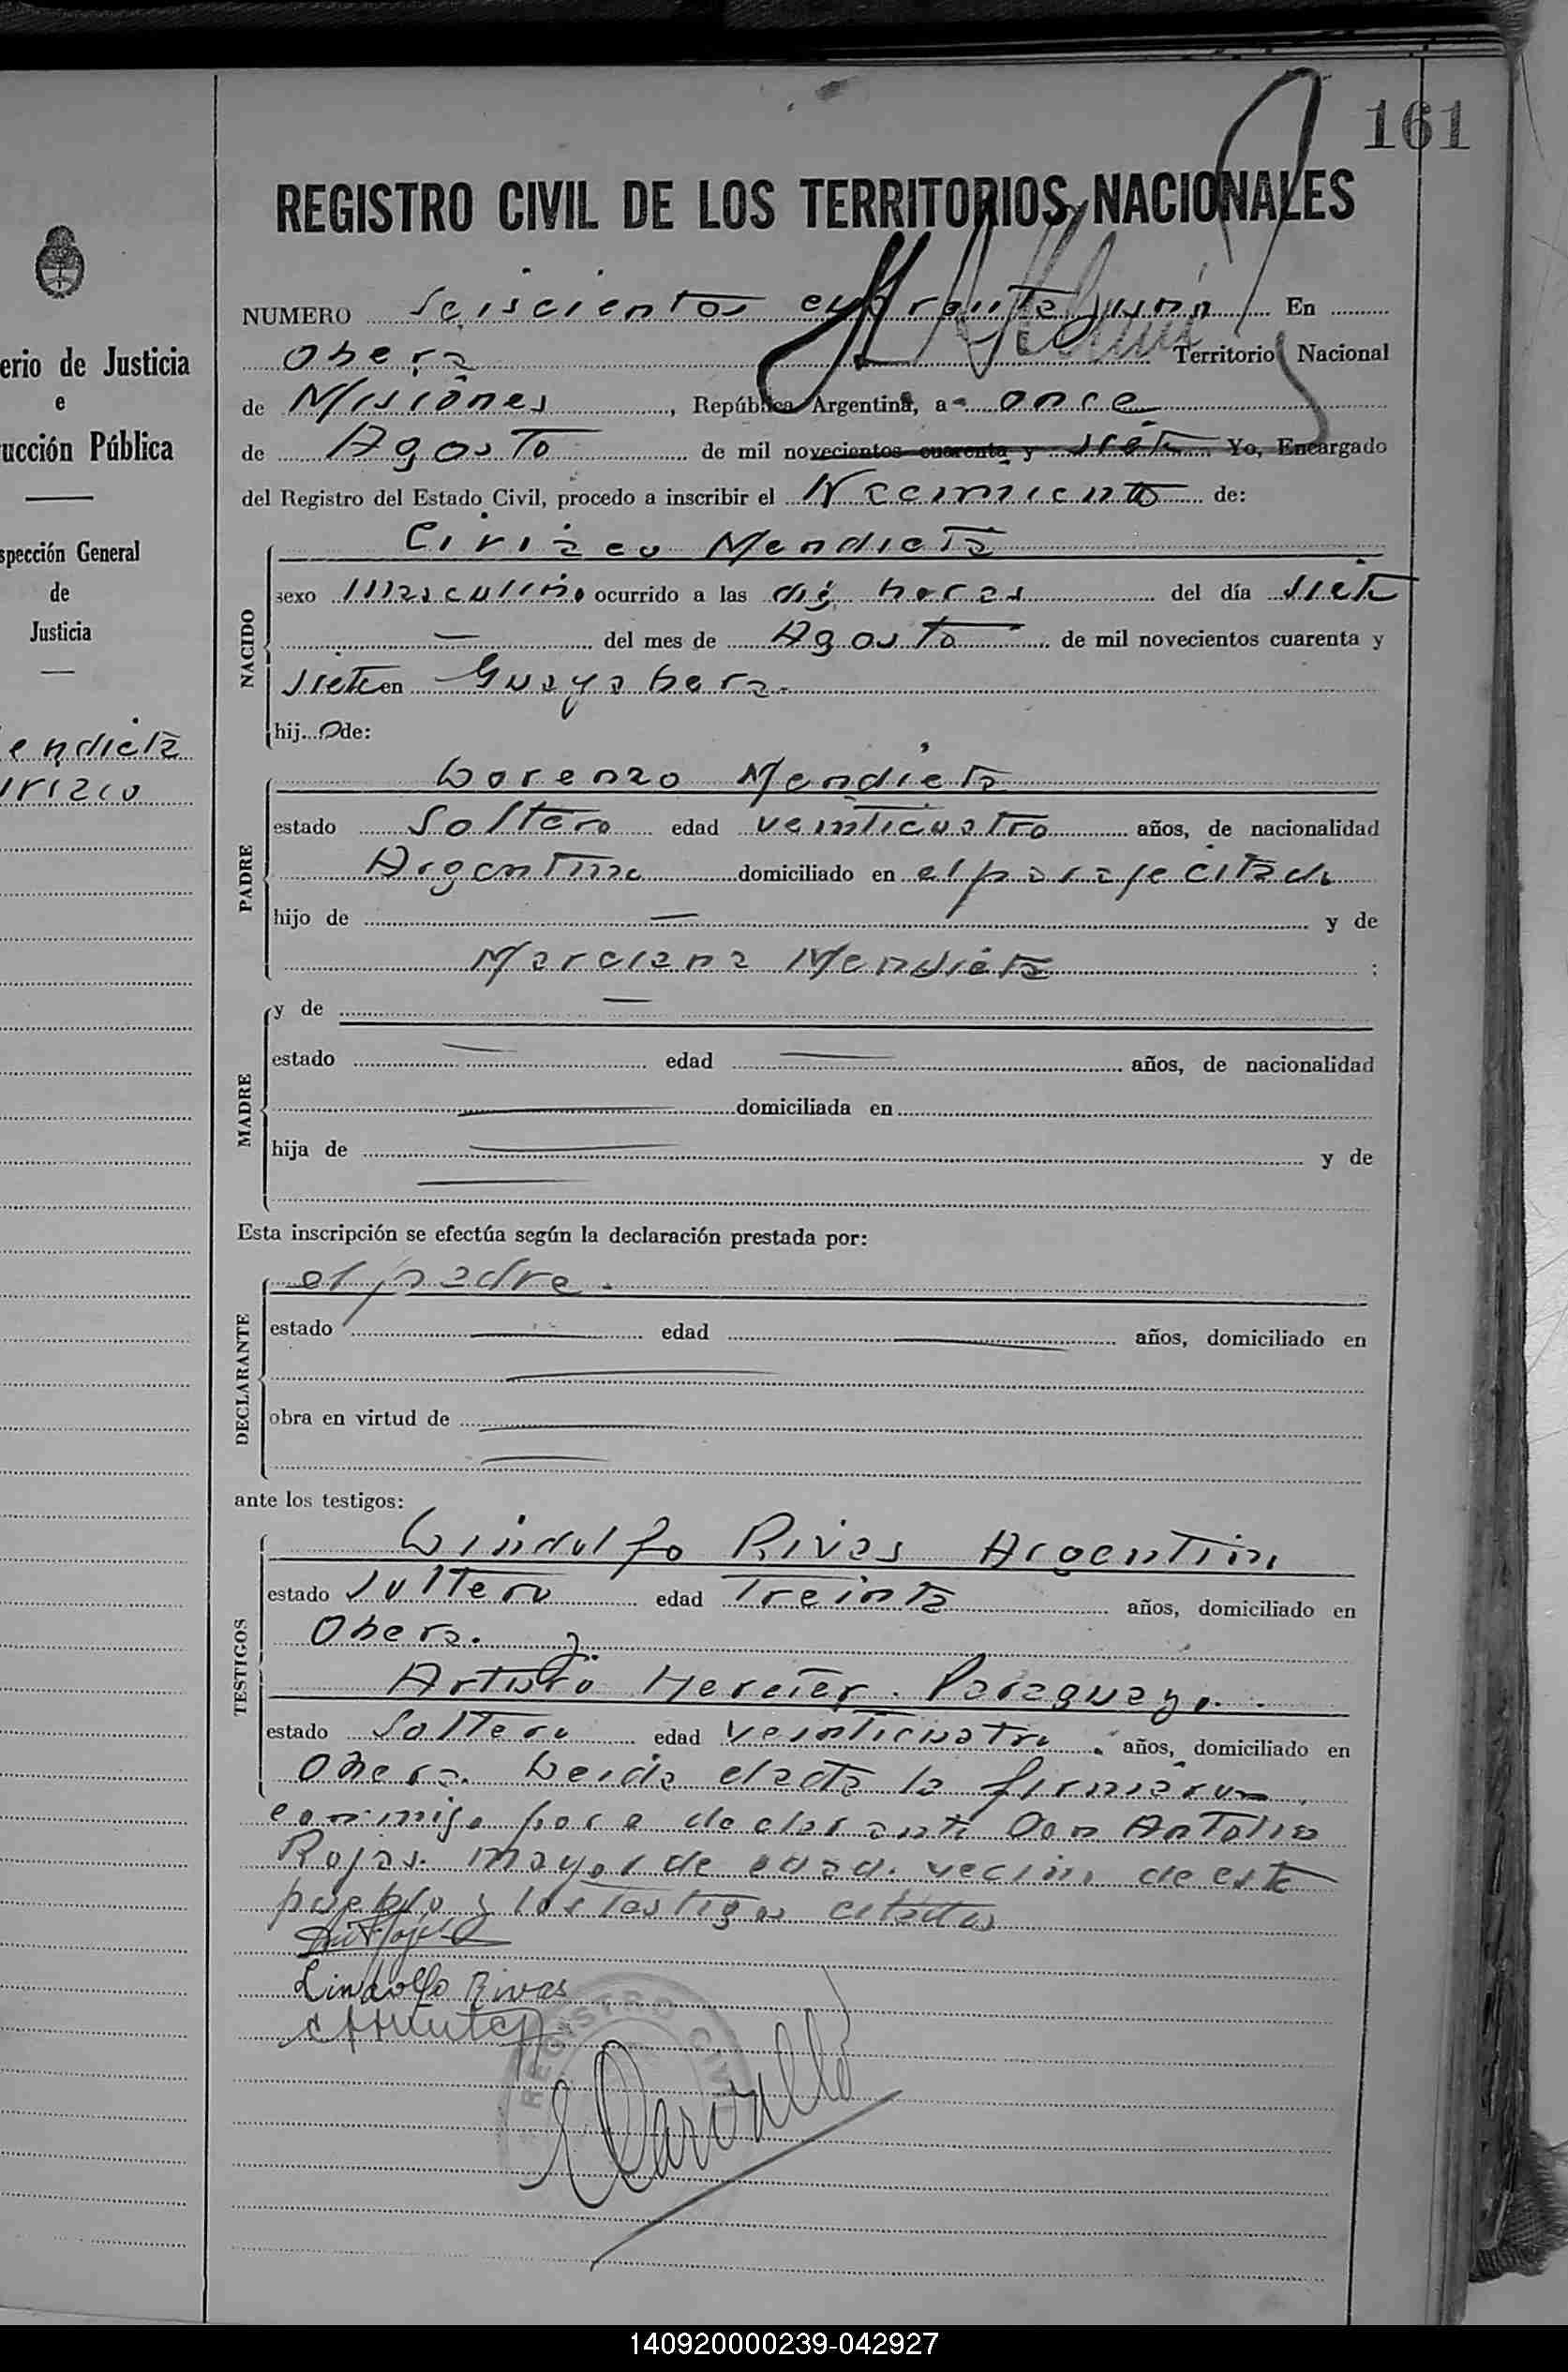 161
REGISTRO CIVIL DE LOS TERRITORIOS NACIONALES
NUMERO Seiscientos cuarenta y uno En
Obera Territorio Nacional
de Misiones, República Argentina, a once
de Agosto de mil novecientos cuarenta y siete Yo, Encargado
del Registro del Estado Civil, procedo a inscribir el Nacimiento de:
NACIDO
Ciriaco Mendieta
sexo masculino ocurrido a las diez horas del día siete
del mes de Agosto de mil novecientos cuarenta y
siete en Guayabera.
hijo de:
PADRE
Lorenzo Mendieta
estado Soltero edad veinticuatro años, de nacionalidad
Argentino domiciliado en el paraje citado
hijo de — y de
Marciana Mendieta ;
MADRE
y de —
estado — edad — años, de nacionalidad
— domiciliada en
hija de — y de
—
Esta inscripción se efectúa según la declaración prestada por:
DECLARANTE
el padre.
estado — edad — años, domiciliado en
—
obra en virtud de —
—
ante los testigos:
TESTIGOS
Lindulfo Rivas Argentino
estado soltero edad Treinta años, domiciliado en
Obera. y
Arturo Paraguayo.
estado Soltero edad veinticuatro años, domiciliado en
Obera. Leida el acta la firmaron
conmigo por el declarante Don Antolin
Rojas. mayor de edad. vecino de este
pueblo y los testigos citados
Lindolfo Rivas
REGISTRO CIVIL
erio de Justicia
e
ucción Pública
spección General
de
Justicia
endieta
iriaco
140920000239-042927